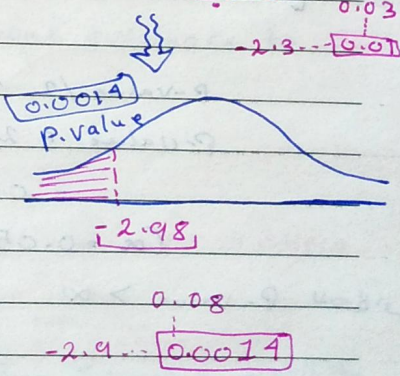 0.03
-2.3 ... 0.01
0.0014
p.value
-2.98
0.08
-2.9 ... 0.0014